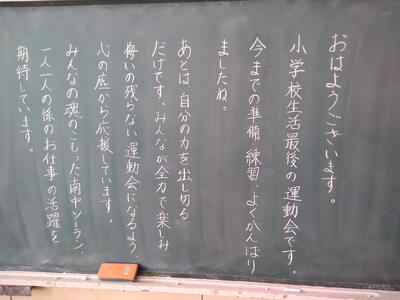 おはようございます。
小学校生活最後の運動会です。
今までの準備・練習、よくがんばり
ましたね。
あとは、自分の力を出し切る
だけです。みんなが全力で楽しみ、
悔いの残らない運動会になるよう、
心の底から応援しています。
みんなの魂のこもった南中ソーラン、
一人一人の係のお仕事の活躍を
期待しています。